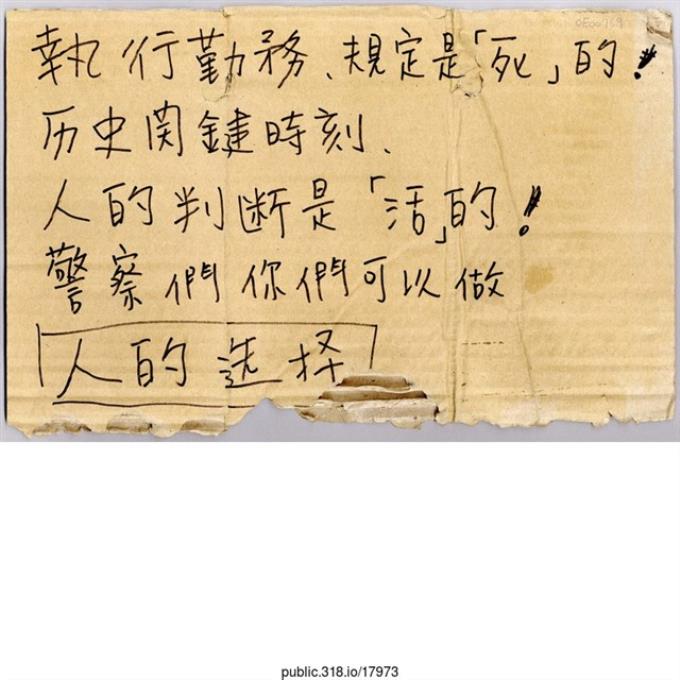 0E00769
執行勤務、規定是「死」的！
历史関鍵時刻、
人的判断是「活」的！
警察們你們可以做
人的选择
public.318.io/17973